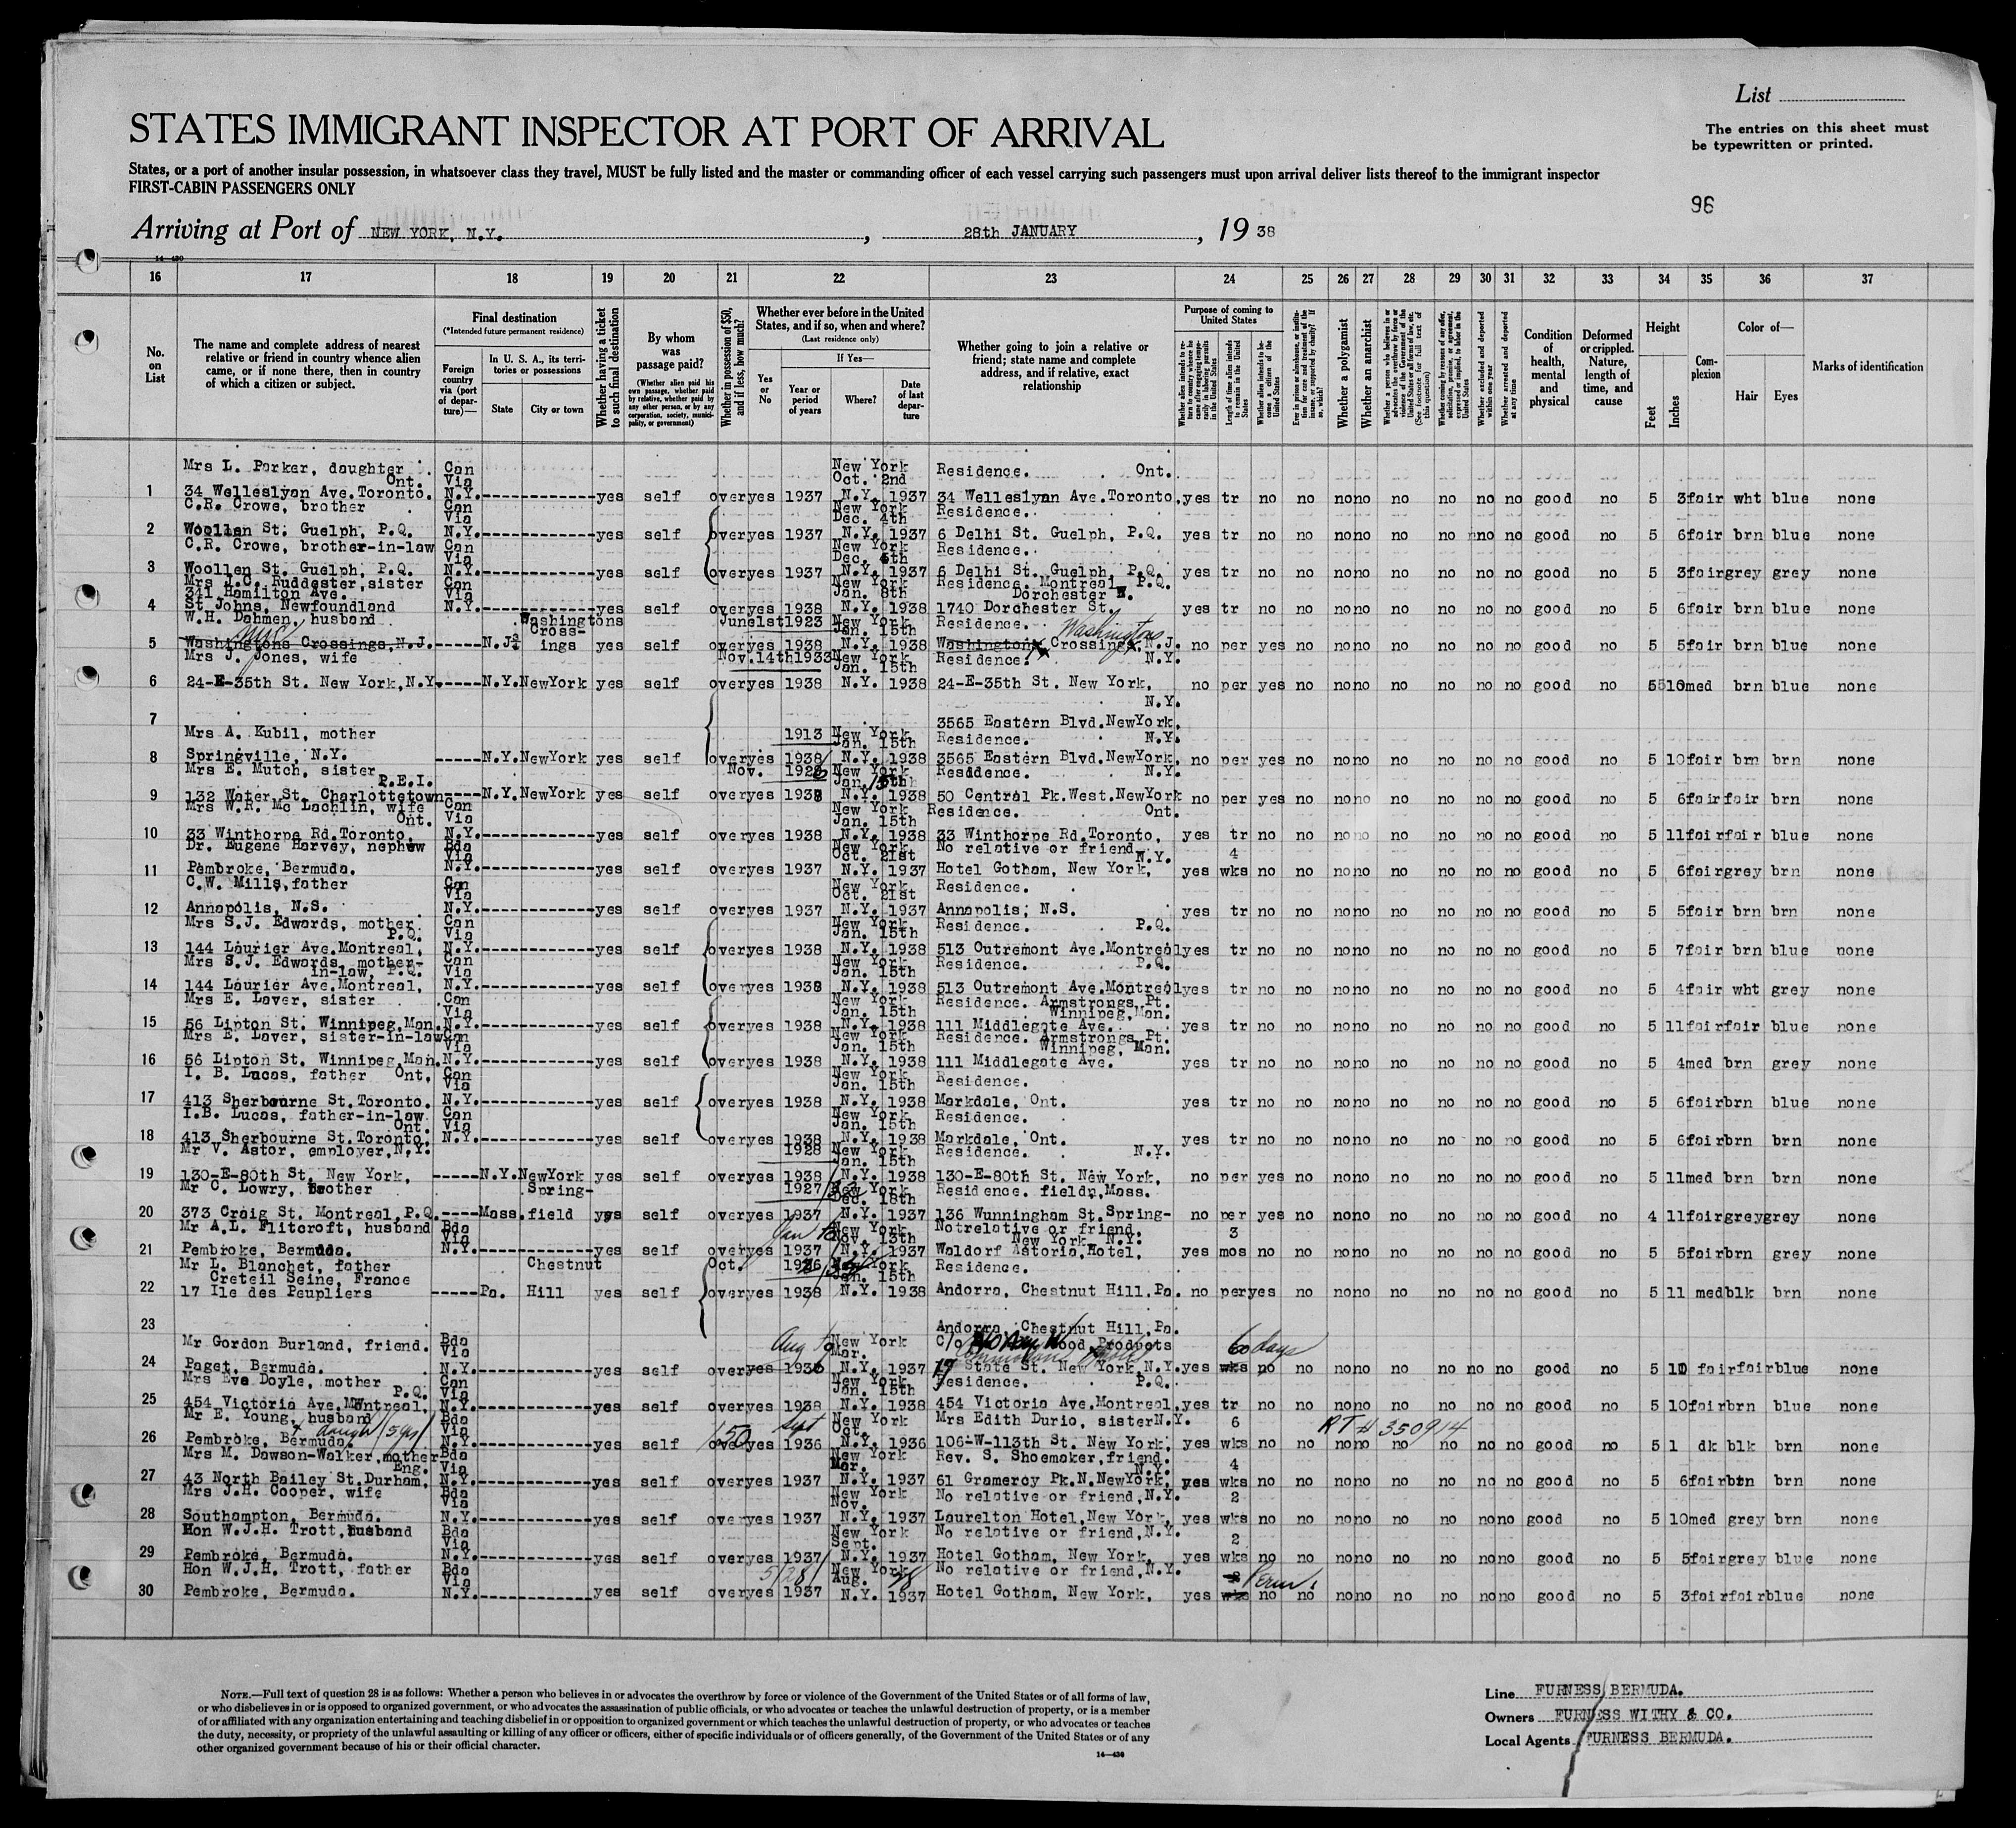 List
STATES IMMIGRANT INSPECTOR AT PORT OF ARRIVAL
The entries on this sheet must
be typewritten or printed.
States, or a port of another insular possession, in whatsoever class they travel, MUST be fully listed and the master or commanding officer of each vessel carrying such passengers must upon arrival deliver lists thereof to the immigrant inspector
FIRST-CABIN PASSENGERS ONLY
96
Arriving at Port of NEW YORK, N.Y. , 28th JANUARY , 19 38
14-430
16 17 18 19 20 21 22 23 24 25 26 27 28 29 30 31 32 33 34 35 36 37
No. on List
The name and complete address of nearest relative or friend in country whence alien came, or if none there, then in country of which a citizen or subject.
Final destination
(*Intended future permanent residence)
Foreign country via (port of departure)—
In U. S. A., its territories or possessions
State
City or town
Whether having a ticket to such final destination
By whom was passage paid?
(Whether alien paid his own passage, whether paid by relative, whether paid by any other person, or by any corporation, society, municipality, or government)
Whether in possession of $50, and if less, how much?
Whether ever before in the United States, and if so, when and where?
(Last residence only)
Yes or No
If Yes—
Year or period of years
Where?
Date of last departure
Whether going to join a relative or friend; state name and complete address, and if relative, exact relationship
Purpose of coming to United States
Whether alien intends to return to country whence he came after engaging temporarily in laboring pursuits in the United States
Length of time alien intends to remain in the United States
Whether alien intends to become a citizen of the United States
Ever in prison or almshouse, or institution for care and treatment of the insane, or supported by charity? If so, which?
Whether a polygamist
Whether an anarchist
Whether a person who believes in or advocates the overthrow by force or violence of the Government of the United States or all forms of law, etc. (See footnote for full text of this question)
Whether coming by reasons of any offer, solicitation, promise, or agreement, expressed or implied, to labor in the United States
Whether excluded and deported within one year
Whether arrested and deported at any time
Condition of health, mental and physical
Deformed or crippled. Nature, length of time, and cause
Height
Feet
Inches
Complexion
Color of—
Hair
Eyes
Marks of identification
Mrs L. Parker, daughter Can New York Residence. Ont.
Ont. Via Oct. 2nd
1 34 Welleslyan Ave.Toronto. N.Y. yes self over yes 1937 N.Y. 1937 34 Welleslyan Ave.Toronto. yes tr no no no no no no no no good no 5 3 fair wht blue none
C.R. Crowe, brother Can New York Residence.
Via Dec. 4th
2 Woollen St. Guelph, P.Q. N.Y. yes self over yes 1937 N.Y. 1937 6 Delhi St. Guelph, P.Q. yes tr no no no no no no no no good no 5 6 fair brn blue none
C.R. Crowe, brother-in-law Can New York Residence.
Via Dec. 4th
3 Woollen St. Guelph, P.Q. N.Y. yes self over yes 1937 N.Y. 1937 6 Delhi St. Guelph, P.Q. yes tr no no no no no no no no good no 5 3 fair grey grey none
Mrs J.C. Ruddester, sister Can New York Residence. Montreal P.Q.
341 Hamilton Ave. Via Jan. 8th Dorchester W.
4 St. Johns, Newfoundland N.Y. yes self over yes 1938 N.Y. 1938 1740 Dorchester St. yes tr no no no no no no no no good no 5 6 fair brn blue none
W.H. Dahmen, husband Washingtons June 1st 1923 New York Residence. Washingtons
Cross- Jan. 15th
5 Washingtons Crossings, N.J. N.J. ings yes self over yes 1938 N.Y. 1938 Washingtons Crossings, N.J. no per yes no no no no no no no good no 5 5 fair brn blue none
Mrs J. Jones, wife Nov. 14th 1933 New York Residence. N.Y.
Jan. 15th
6 24-E-35th St. New York, N.Y. N.Y. NewYork yes self over yes 1938 N.Y. 1938 24-E-35th St. New York, no per yes no no no no no no no good no 5 10 med brn blue none
N.Y.
7 3565 Eastern Blvd.NewYork.
Mrs A. Kubil, mother 1913 New York Residence. N.Y.
Jan. 15th
8 Springville, N.Y. N.Y. NewYork yes self over yes 1938 N.Y. 1938 3565 Eastern Blvd.NewYork, no per yes no no no no no no no good no 5 10 fair brn brn none
Mrs E. Mutch, sister Nov. New York Residence. N.Y.
P.E.I. Jan. 15th
9 132 Water St. Charlottetown N.Y. NewYork yes self over yes 1938 N.Y. 1938 50 Central Pk.West.NewYork no per yes no no no no no no no good no 5 6 fair fair brn none
Mrs W.R. Mc Lachlin, wife Can New York Residence. Ont.
Ont. Via Jan. 15th
10 33 Winthorpe Rd.Toronto, N.Y. yes self over yes 1938 N.Y. 1938 33 Winthorpe Rd.Toronto, yes tr no no no no no no no no good no 5 11 fair fair blue none
Dr. Eugene Harvey, nephew Bda New York No relative or friend
Via Oct. 21st N.Y. 4
11 Pembroke, Bermuda. N.Y. yes self over yes 1937 N.Y. 1937 Hotel Gotham, New York, yes wks no no no no no no no no good no 5 6 fair grey brn none
C.W. Mills, father Can New York Residence.
Via Oct. 21st
12 Annapolis, N.S. N.Y. yes self over yes 1937 N.Y. 1937 Annapolis, N.S. yes tr no no no no no no no no good no 5 5 fair brn brn none
Mrs S.J. Edwards, mother Can New York Residence. P.Q.
P.Q. Via Jan. 15th
13 144 Laurier Ave.Montreal, N.Y. yes self over yes 1938 N.Y. 1938 513 Outremont Ave.Montreal yes tr no no no no no no no no good no 5 7 fair brn blue none
Mrs S.J. Edwards, mother- Can New York Residence. P.Q.
in-law, P.Q. Via Jan. 15th
14 144 Laurier Ave.Montreal, N.Y. yes self over yes 1938 N.Y. 1938 513 Outremont Ave.Montreal yes tr no no no no no no no no good no 5 4 fair wht grey none
Mrs E. Laver, sister Can New York Residence. Armstrongs Pt.
Via Jan. 15th Winnipeg, Man.
15 56 Lipton St. Winnipeg,Man. N.Y. yes self over yes 1938 N.Y. 1938 111 Middlegate Ave. yes tr no no no no no no no no good no 5 11 fair fair blue none
Mrs E. Laver, sister-in-law Can New York Residence. Armstrongs Pt.
Via Jan. 15th Winnipeg, Man.
16 56 Lipton St. Winnipeg,Man. N.Y. yes self over yes 1938 N.Y. 1938 111 Middlegate Ave. yes tr no no no no no no no no good no 5 4 med brn grey none
I. B. Lucas, father Ont. Can New York Residence.
Via Jan. 15th
17 413 Sherbourne St.Toronto. N.Y. yes self over yes 1938 N.Y. 1938 Markdale, Ont. yes tr no no no no no no no no good no 5 6 fair brn blue none
I.B. Lucas, father-in-law Can New York Residence.
Ont. Via Jan. 15th
18 413 Sherbourne St.Toronto, N.Y. yes self over yes 1938 N.Y. 1938 Markdale, Ont. yes tr no no no no no no no no good no 5 6 fair brn brn none
Mr V. Astor, employer, N.Y. 1928 New York Residence. N.Y.
Jan. 15th
19 130-E-80th St. New York, N.Y. NewYork yes self over yes 1938 N.Y. 1938 130-E-80th St. New York, no per yes no no no no no no no good no 5 11 med brn brn none
Mr C. Lowry, brother Spring- 1927 New York Residence. field, Mass.
Dec. 18th
20 373 Craig St. Montreal, P.Q. Mass. field yes self over yes 1937 N.Y. 1937 136 Wunningham St.Spring- no per yes no no no no no no no good no 4 11 fair grey grey none
Mr A.L. Flitcroft, husband Bda Jan New York Not relative or friend. 3
Via Nov. 13th New York N.Y.
21 Pembroke, Bermuda. N.Y. yes self over yes 1937 N.Y. 1937 Waldorf Astoria, Hotel, yes mos no no no no no no no no good no 5 5 fair brn grey none
Mr L. Blanchet, father Chestnut Oct. 1926 New York Residence.
Creteil Seine, France Jan. 15th
22 17 Ile des Peupliers Pa. Hill yes self over yes 1938 N.Y. 1938 Andorra, Chestnut Hill, Pa. no per yes no no no no no no no good no 5 11 med blk brn none
23 Andorra, Chestnut Hill, Pa.
Mr Gordon Burland, friend. Bda Aug New York C/o Food Products 60 days
Via Mar.
24 Paget, Bermuda. N.Y. yes self over yes N.Y. 1937 State St. New York, N.Y. yes wks no no no no no no no no good no 5 fair fair blue none
Mrs Eva Doyle, mother Can New York Residence. P.Q.
P.Q. Via Jan. 15th
25 454 Victoria Ave.Montreal, N.Y. yes self over yes 1938 N.Y. 1938 454 Victoria Ave.Montreal, yes tr no no no no no no no no good no 5 10 fair brn blue none
Mr E. Young, husband Bda Sept New York Mrs Edith Durio, sister N.Y. 6 RT # 350914
Via Oct.
26 Pembroke, Bermuda. N.Y. yes self over 150 yes 1936 N.Y. 1936 106-W-113th St. New York, yes wks no no no no no no no no good no 5 1 dk blk brn none
Mrs M. Dawson-Walker, mother Bda New York Rev. S. Shoemaker, friend.
Eng. Via Mar. N.Y. 4
27 43 North Bailey St.Durham, N.Y. yes self over yes 1937 N.Y. 1937 61 Gramercy Pk.N.NewYork, yes wks no no no no no no no no good no 5 6 fair brn brn none
Mrs J.H. Cooper, wife Bda New York No relative or friend, N.Y.
Via Nov. 2
28 Southampton, Bermuda. N.Y. yes self over yes 1937 N.Y. 1937 Laurelton Hotel, New York, yes wks no no no no no no no no good no 5 10 med grey brn none
Hon W.J.H. Trott, husband Bda New York No relative or friend, N.Y.
Via Sept. 2
29 Pembroke, Bermuda. N.Y. yes self over yes 1937 N.Y. 1937 Hotel Gotham, New York, yes wks no no no no no no no no good no 5 5 fair grey blue none
Hon W.J.H. Trott, father Bda 5/28/ New York No relative or friend, N.Y.
Via Aug. Perm.
30 Pembroke, Bermuda. N.Y. yes self over yes 1937 N.Y. 1937 Hotel Gotham, New York, yes wks no no no no no no no no good no 5 3 fair fair blue none
NOTE.—Full text of question 28 is as follows: Whether a person who believes in or advocates the overthrow by force or violence of the Government of the United States or of all forms of law,
or who disbelieves in or is opposed to organized government, or who advocates the assassination of public officials, or who advocates or teaches the unlawful destruction of property, or is a member
of or affiliated with any organization entertaining and teaching disbelief in or opposition to organized government or which teaches the unlawful destruction of property, or who advocates or teaches
the duty, necessity, or propriety of the unlawful assaulting or killing of any officer or officers, either of specific individuals or of officers generally, of the Government of the United States or of any
other organized government because of his or their official character.
14-430
Line FURNESS BERMUDA.
Owners FURNESS WITHY & CO.
Local Agents FURNESS BERMUDA.